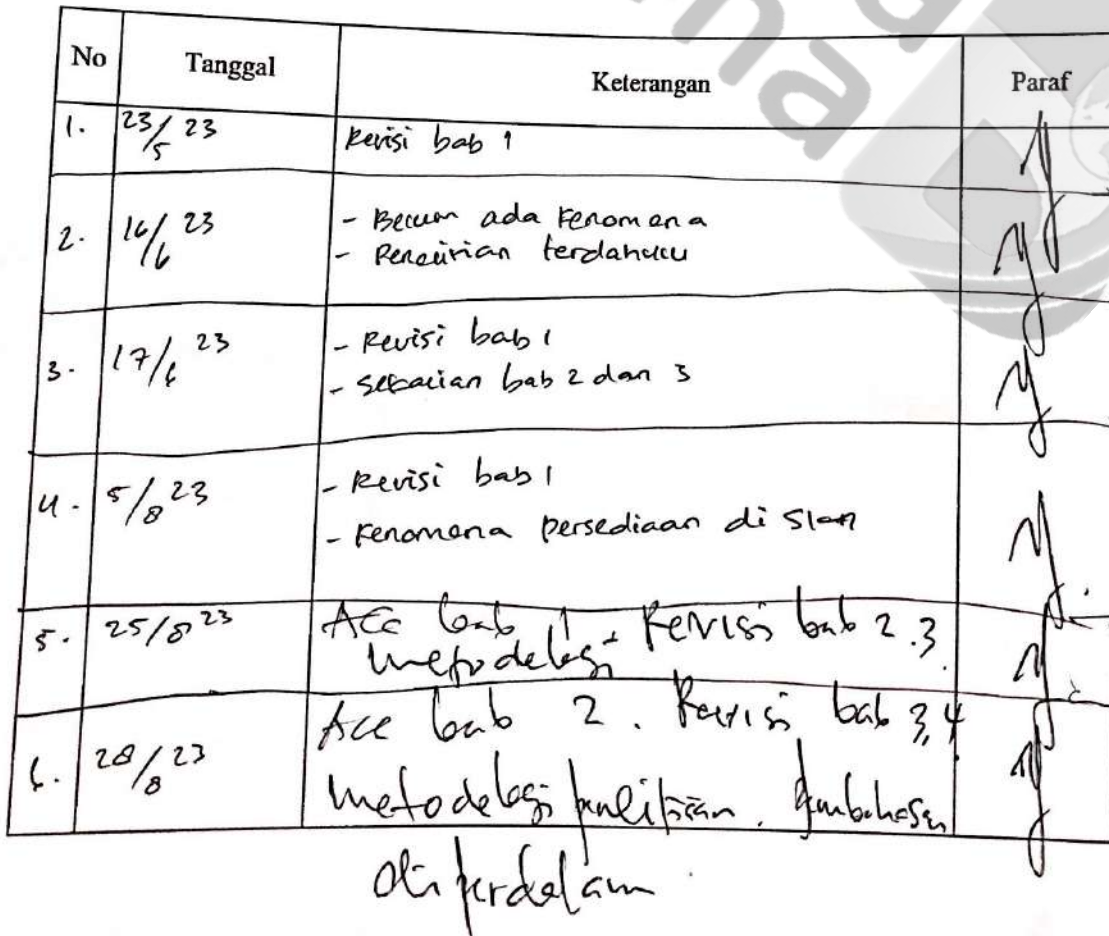 No Tanggal Keterangan Paraf
1. 23/5 23 Revisi bab 1
2. 16/6 23 - Belum ada Fenomena
- Penelitian terdahulu
3. 17/6 23 - Revisi bab 1
- bab 2 dan 3
4. 5/8 23 - Revisi bab 1
- Fenomena persediaan di
5. 25/8 23 Acc bab 1 Revisi bab 2.3
metodelogi
6. 28/8 23 Acc bab 2. Revisi bab 3,4
metodelogi penelitian. pembahasan
diperdalam